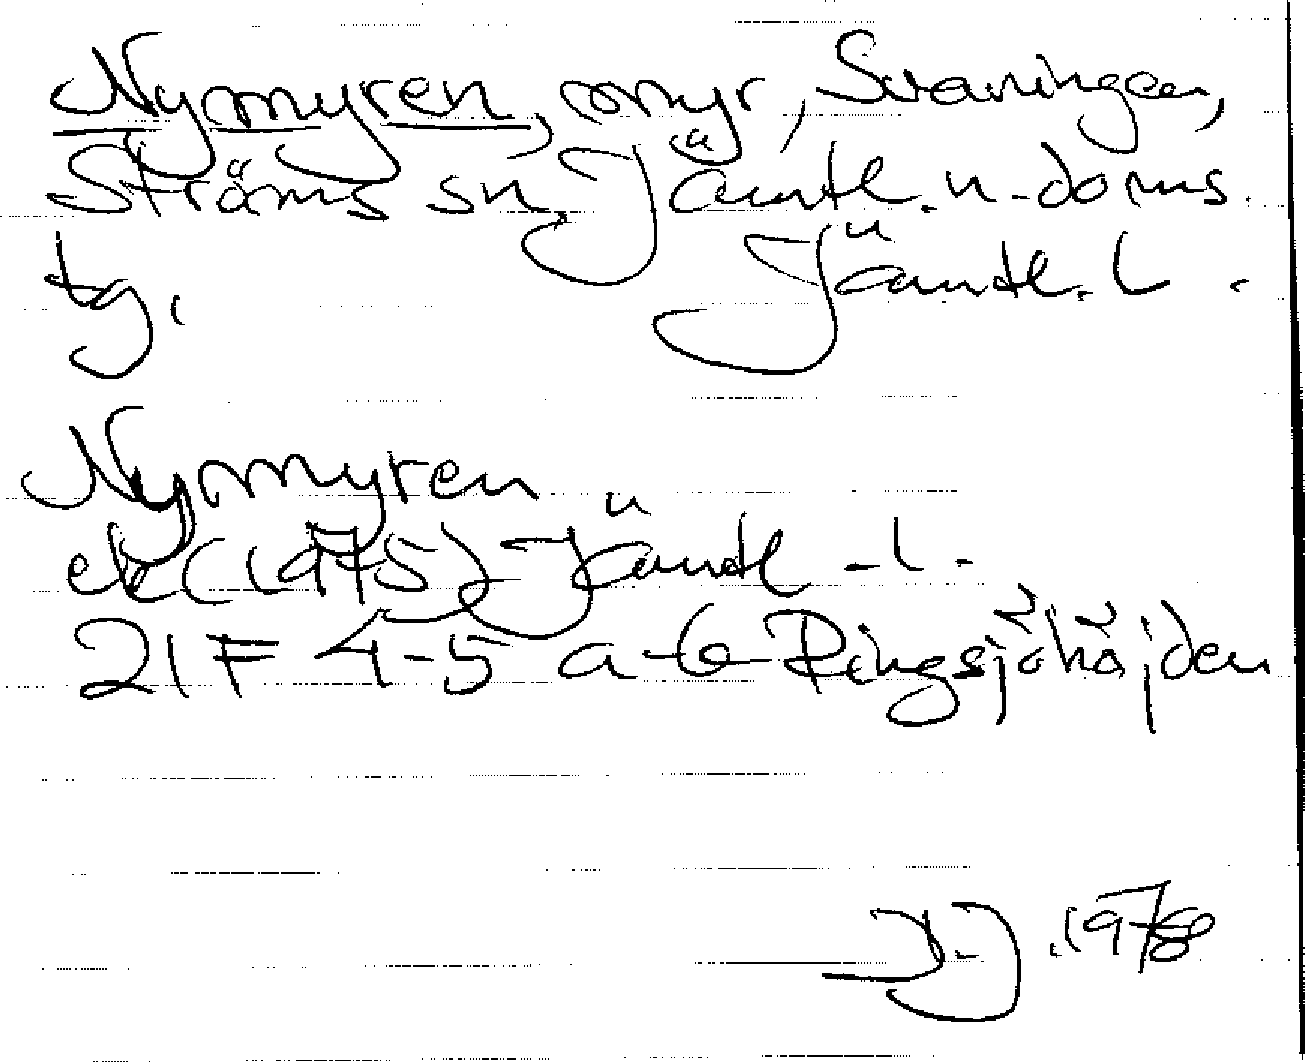 Nymyren, myr, Svaningen,
Ströms sn, Jämtl. n. doms.
tg. Jämtl. l.
Nymyren
ek (1975) Jämtl. l.
21F 4-5 a-b Ringsjöhöjden
1978